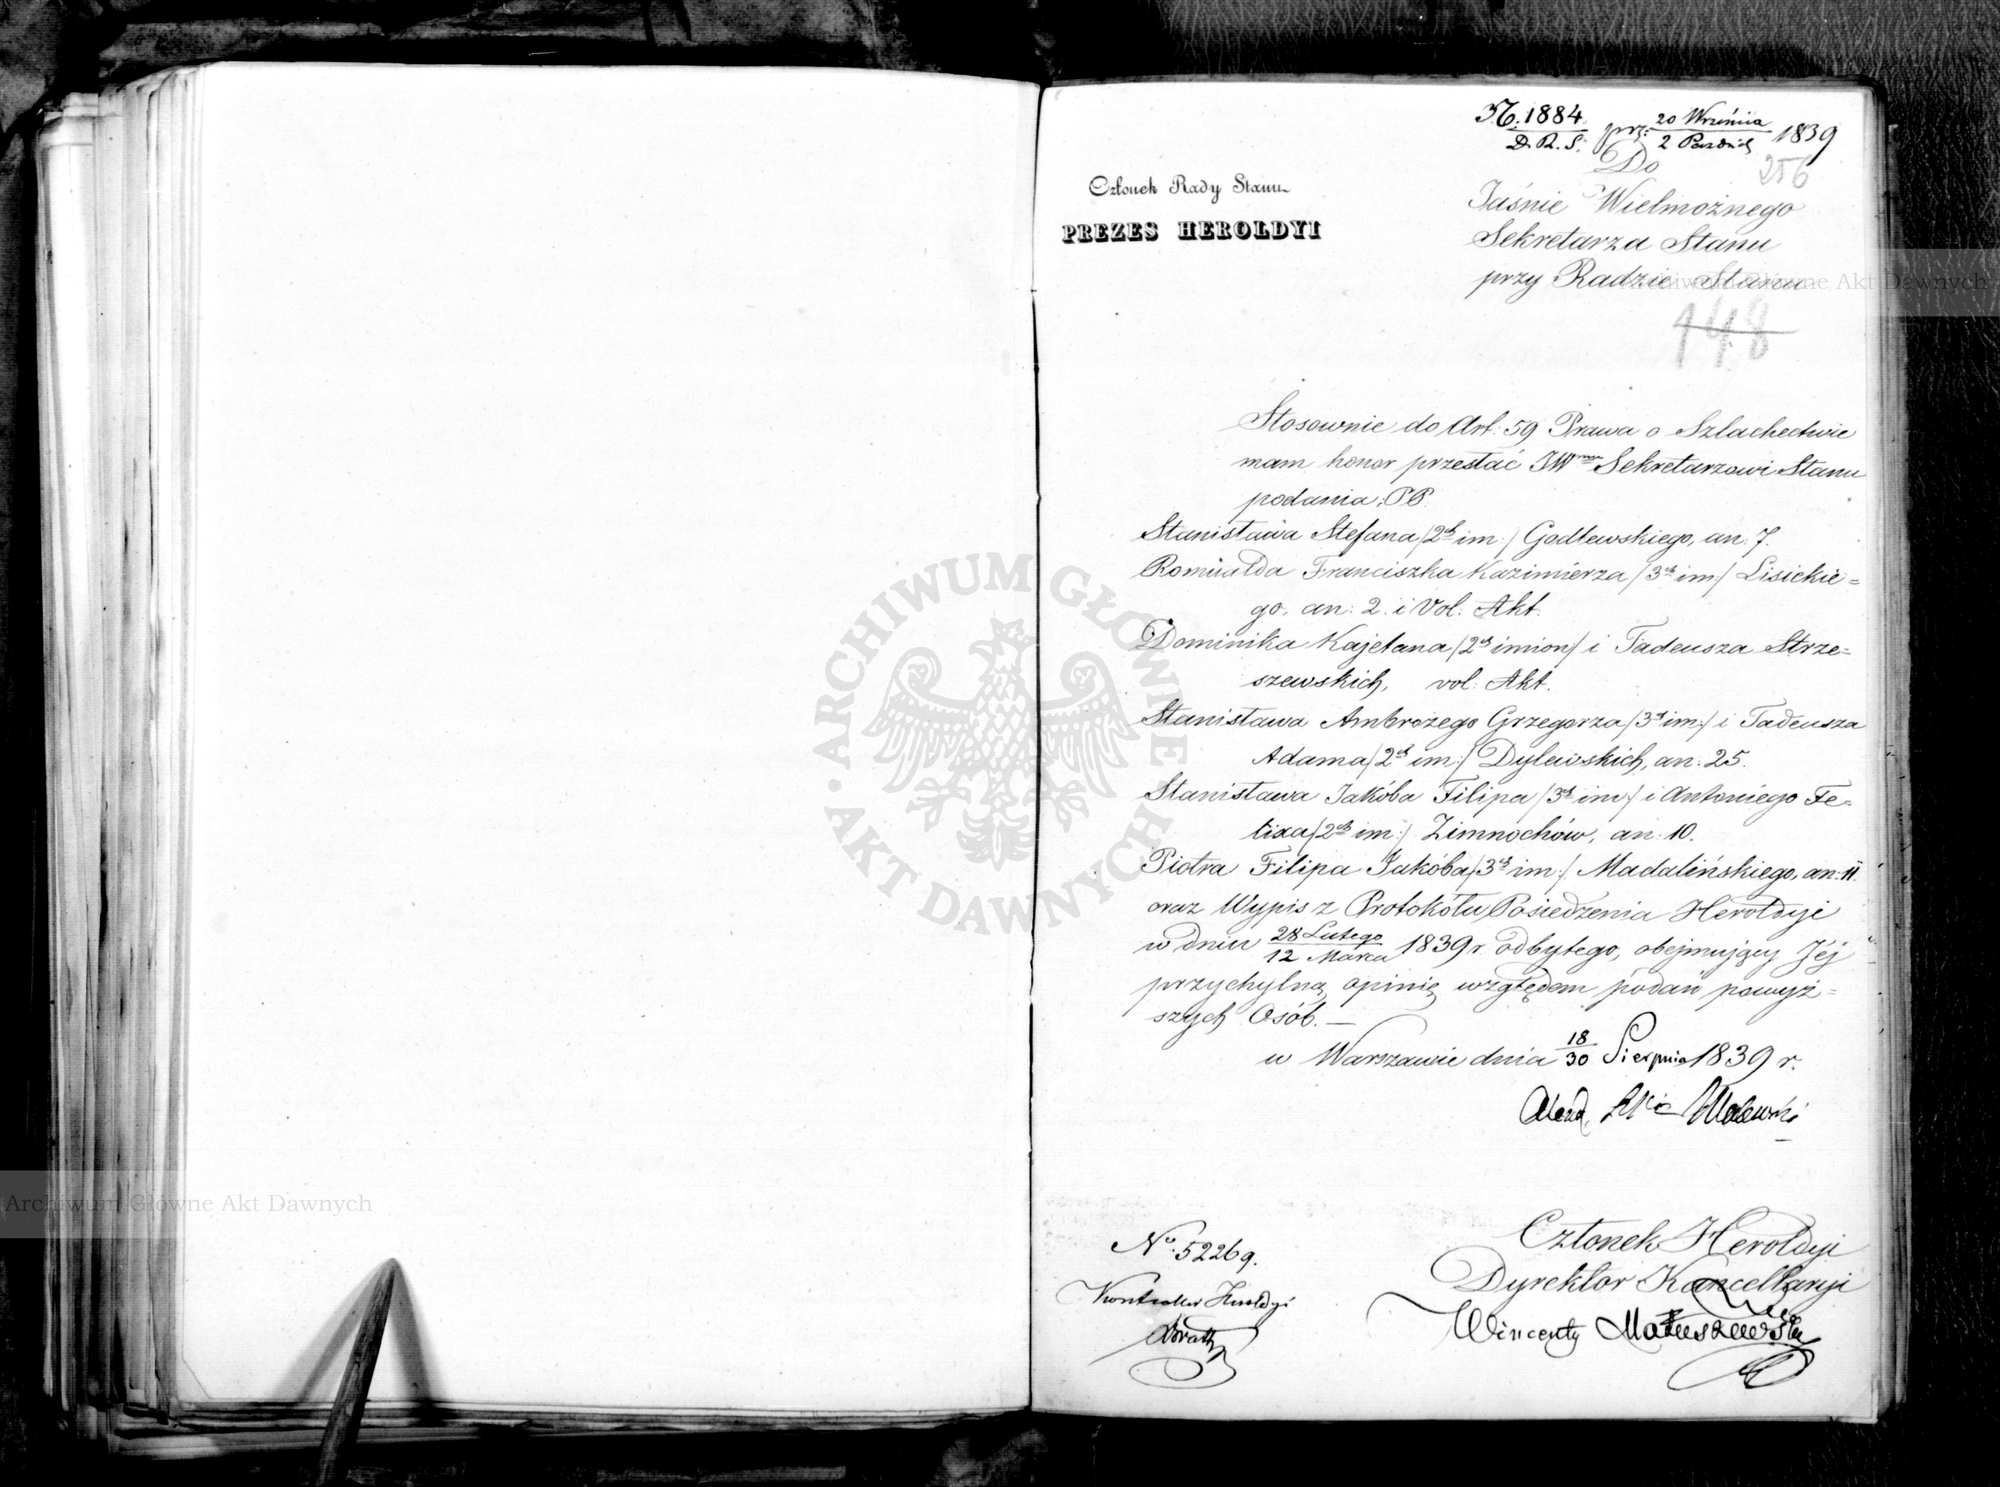 N. 1884 prz: 20 Września 1839
D. R. S. 2 Paździ
Do
256
Członek Rady Stanu
PREZES HEROLDYI
Jaśnie Wielmożnego
Sekretarza Stanu
przy Radzie Stanu
148
Stosownie do Art: 59 Prawa o Szlachectwie
mam honor przesłać JWmu Sekretarzowi Stanu
podania PP.
Stanisława Stefana /2ch im:/ Godlewskiego, an: 7.
Romualda Franciszka Kazimierza /3ch im:/ Lisickie=
go, an: 2. i Vol: Akt.
Dominika Kajetana /2ch imion/ i Tadeusza Strze=
szewskich, vol: Akt.
Stanisława Ambrożego Grzegorza /3ch im:/ i Tadeusza
Adama /2ch im:/ Dylewskich, an: 25.
Stanisława Jakóba Filipa /3ch im:/ i Antoniego Fe=
lixa /2ch im:/ Zimnochów, an: 10.
Piotra Filipa Jakóba /3ch im:/ Madalińskiego, an: 11.
oraz Wypis z Protokółu Posiedzenia Heroldyi
w dniu 28 Lutego / 12 Marca 1839 r. odbytego, obejmujący Jéj
przychylną opinię względem podań powyż=
szych Osób. —
w Warszawie dnia 18/30 Sierpnia 1839 r.
Członek Heroldyi
Dyrektor Kancellaryi
Wincenty Matuszewski
No. 52269.
Kontroller Heroldyi
ARCHIWUM GŁÓWNE AKT DAWNYCH
Archiwum Główne Akt Dawnych
Archiwum Główne Akt Dawnych